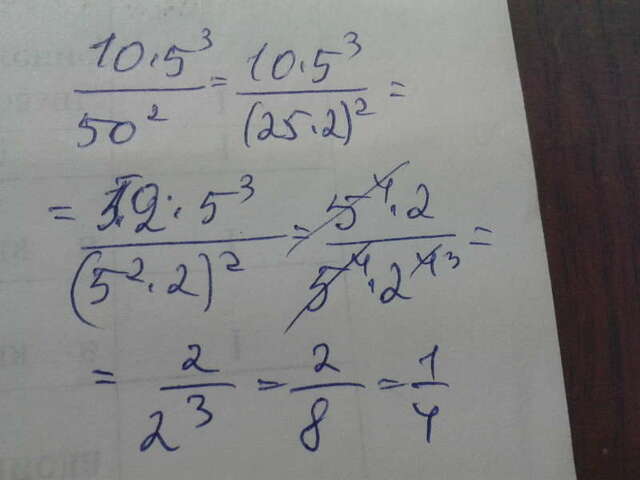 10·5³/50² = 10·5³/(25·2)² =
= 5·2·5³/(5²·2)² = 5⁴·2/5⁴·2³ =
= 2/2³ = 2/8 = 1/4